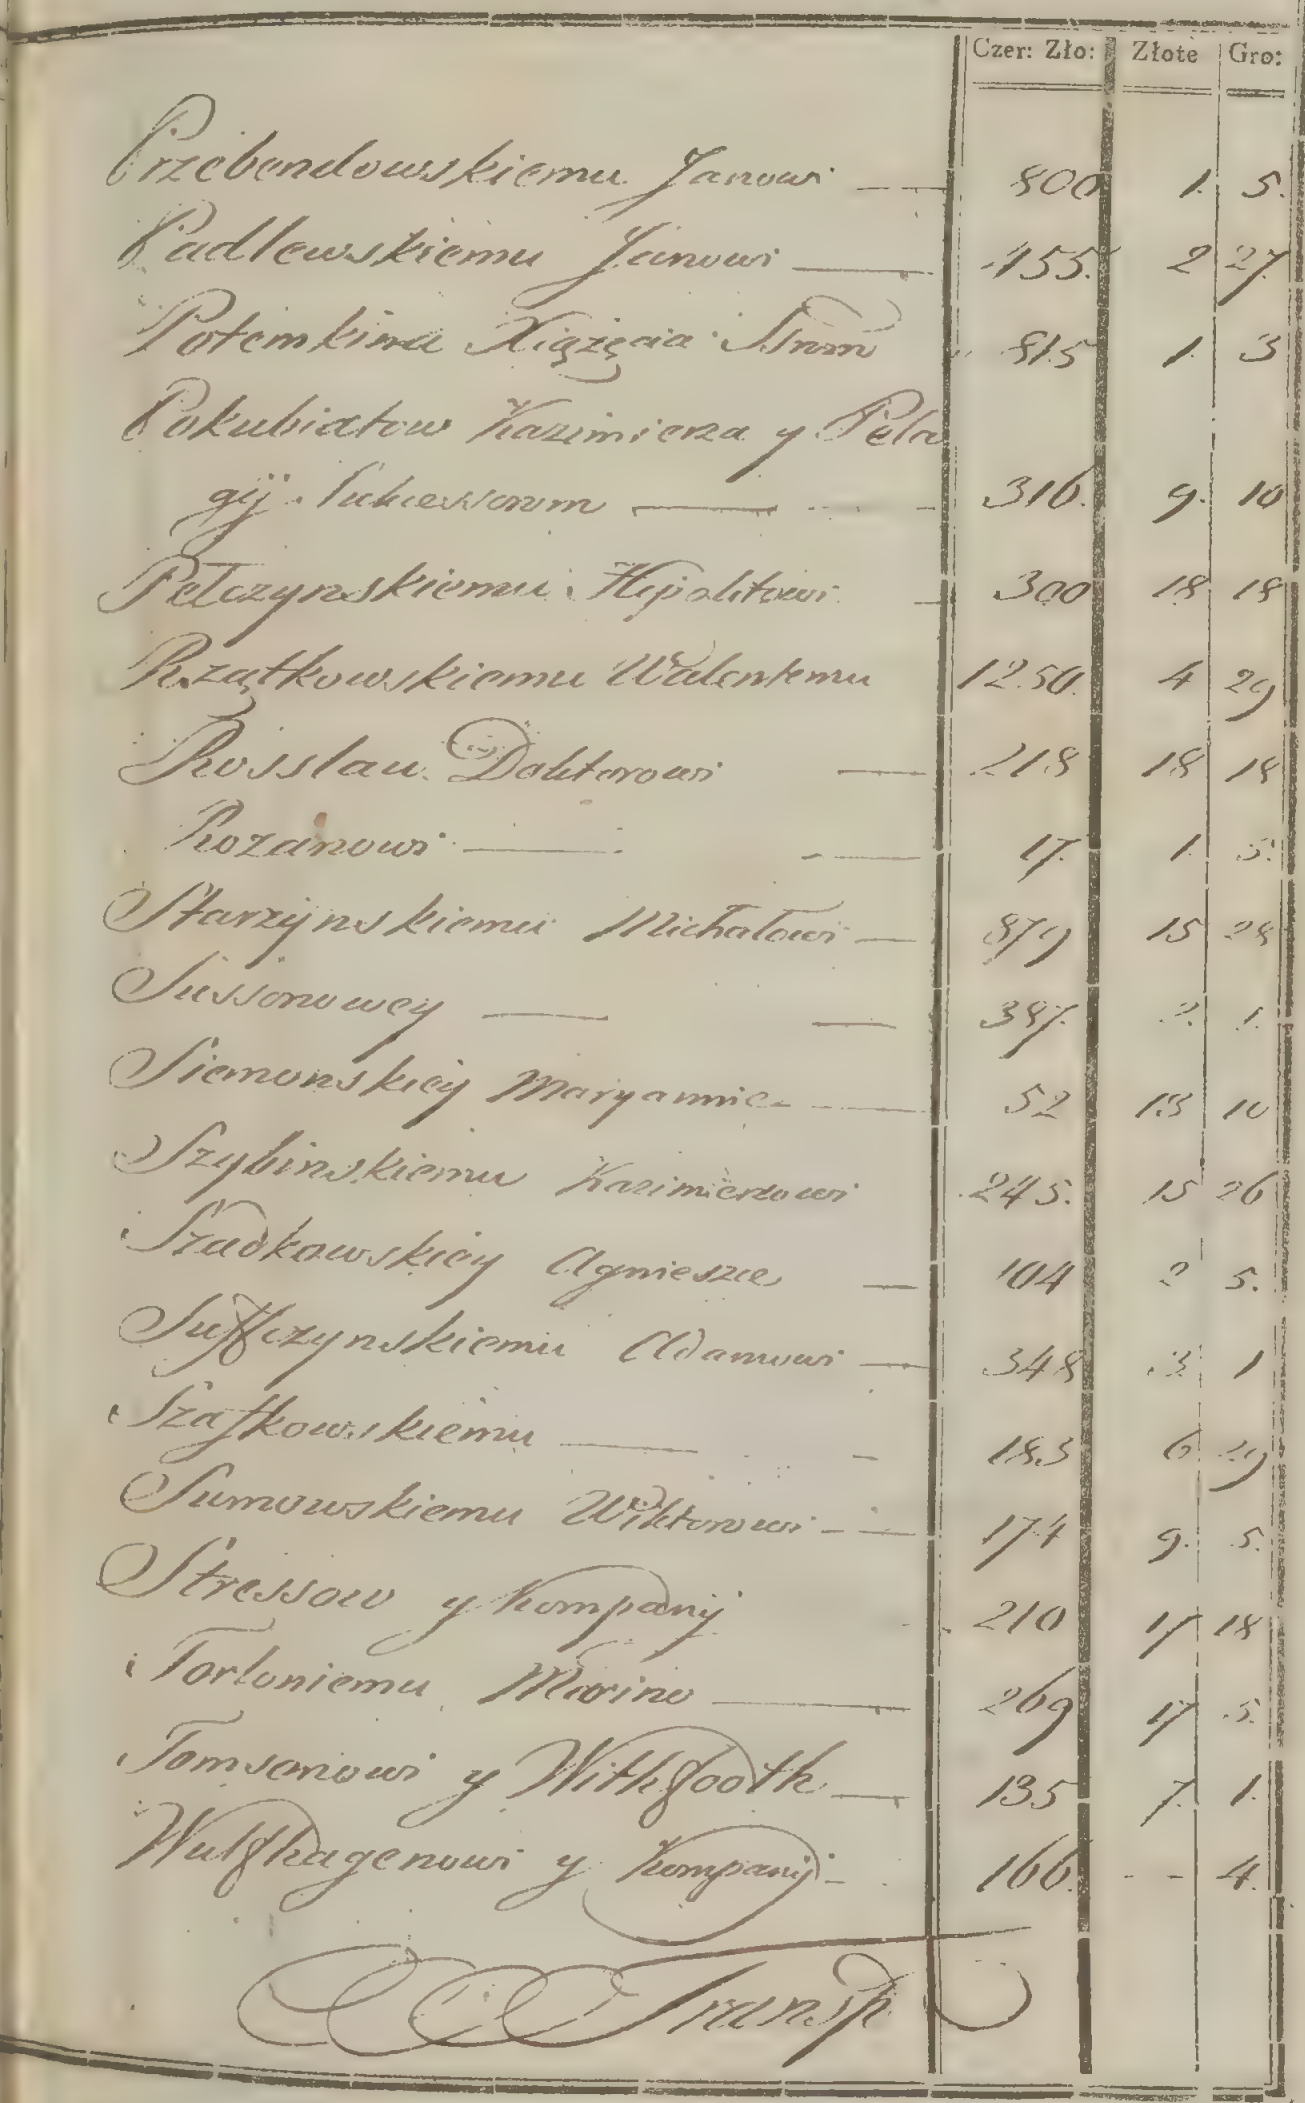 Czer: Zło: Złote Gro:
Przebendowskiemu Janowi 800 1. 5.
Padlewskiemu Janowi 155. 2 27.
Potemkina Xiążęcia 815 1. 3
Pokubiatow Kazimierza y Pela
gij Sukcessorom 316. 9. 10
Pełczynskiemu Hipolitowi 300 18 18
Rządkowskiemu Walentemu 1250. 4 29
Rosslau Doktorowi 218 18 18
Rozanowi 17. 1. 5.
Starzynskiemu Michałowi 879 15 28
Sussonowey 387. 2. 1.
Siemonskiey Maryannie 52 13 10
Szybinskiemu Kazimierzowi 245. 15 26
Szadkowskiey Agnieszce 104 2 5.
Suffczynskiemu Adamowi 348 3 1
Szafkowskiemu 183 6 29
Sumowskiemu Wiktorowi 174 9. 5.
Stressow y Kompanij 210 17 18
Torloniemu Marino 269 17 5.
Tomsonowi y Withfooth 135 7. 1.
Wulfhagenowi y Kompanij 166. - - 4.
Transp